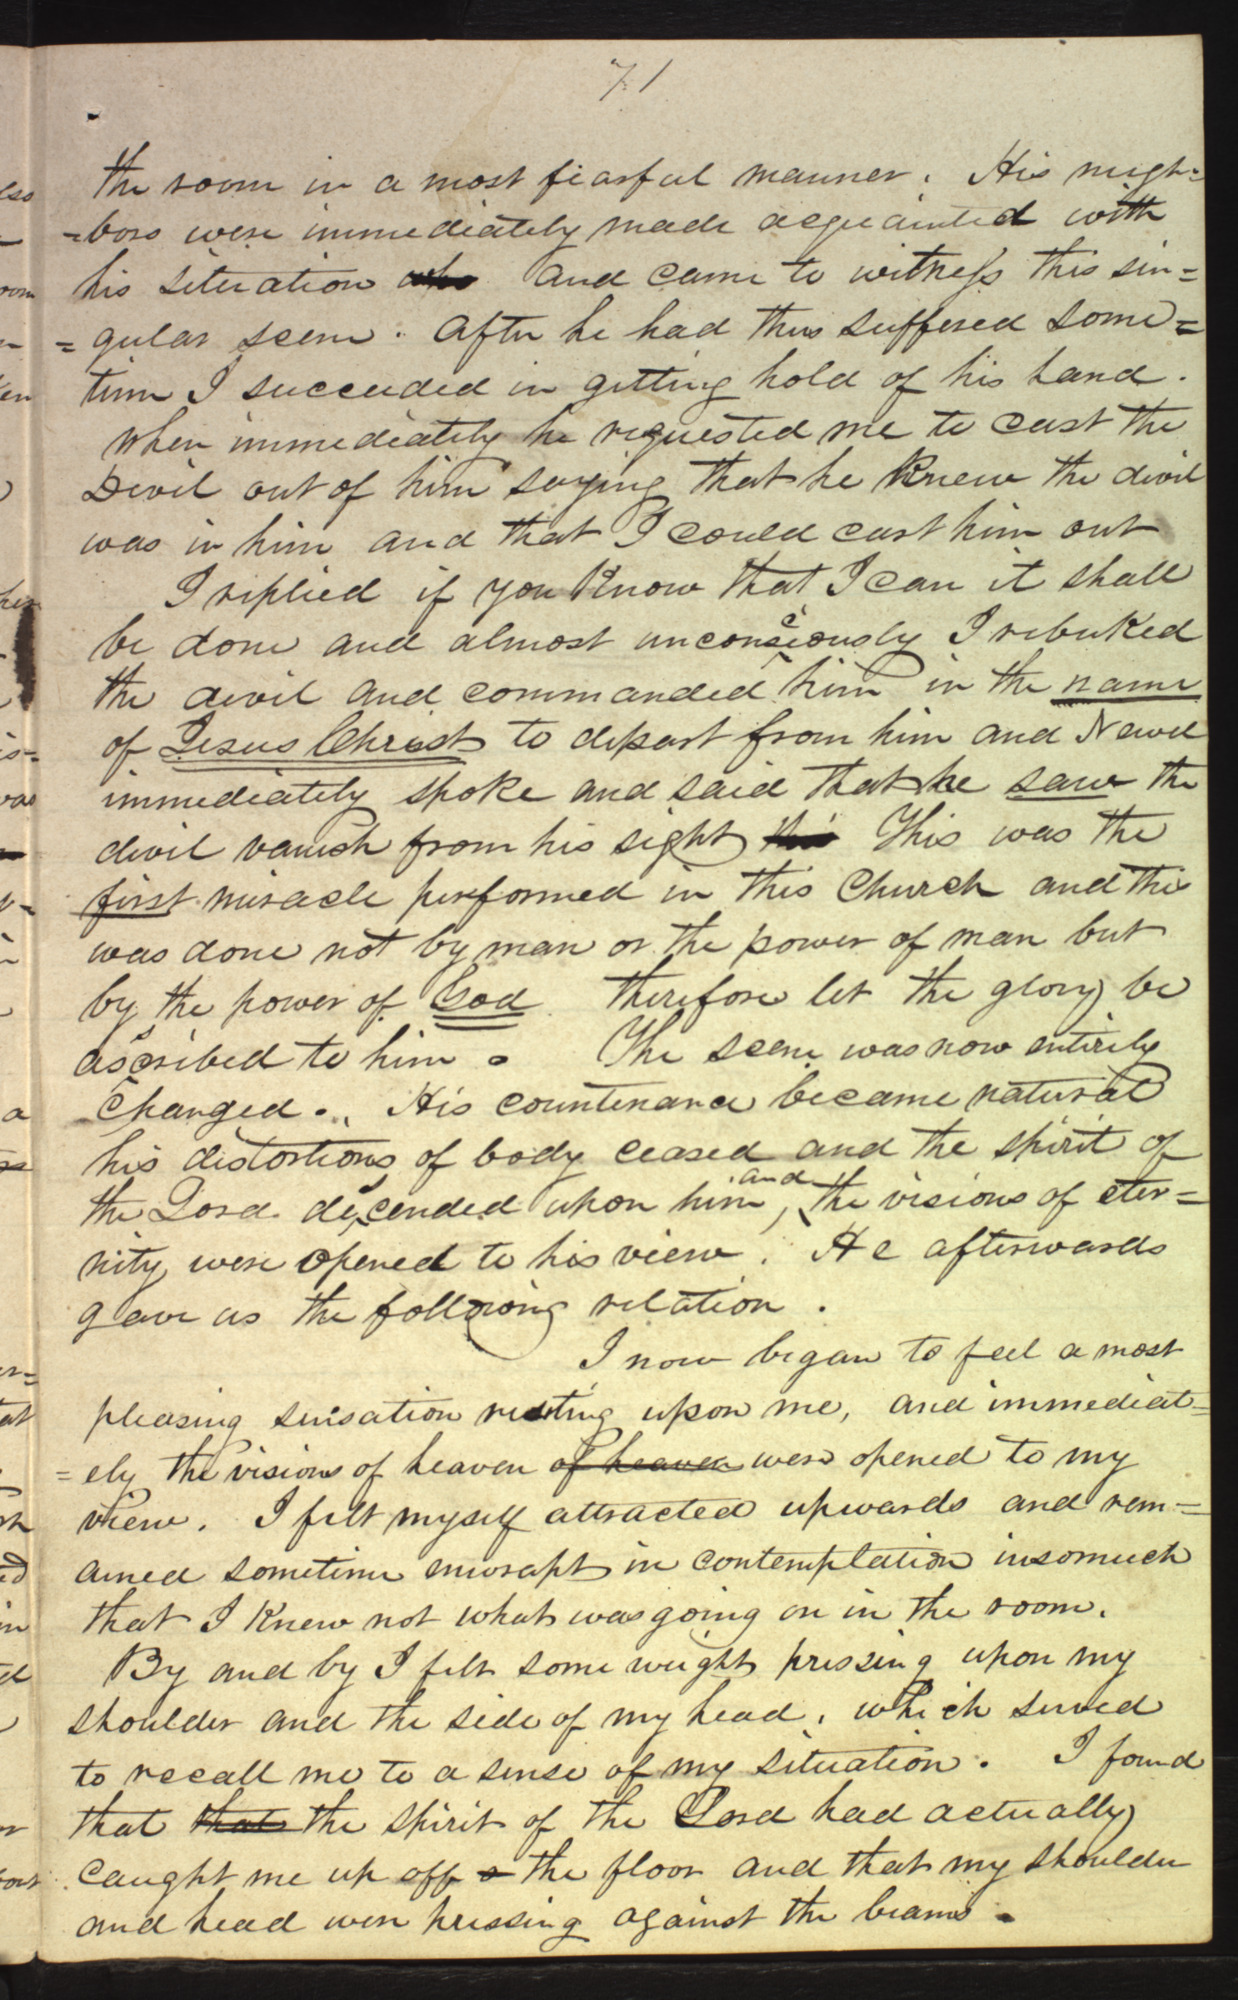 71
the room in a most fearful manner. His neigh=
=bors were immediately made acquainted with
his situation who and came to witness this sin=
=gular scene. After he had thus suffered some=
time I succeeded in getting hold of his hand.
when immediately he requested me to cast the
Devil out of him saying that he Knew the devil
was in him and that I could cast him out
I replied if you Know that I can it shall
be done and almost unconsciously I rebuked
the devil and commanded him in the name
of Jesus Christ to depart from him and Newel
immediately spoke and said that he saw the
devil vanish from his sight this This was the
first miracle performed in this Church and this
was done not by man or the power of man but
by the power of God therefore let the glory be
ascribed to him. The scene was now entirely
Changed. His countenance became natural
his distortions of body ceased and the spirit of
the Lord descended upon him, and the visions of eter=
nity were opened to his view. He afterwards
gave us the following relation.
I now began to feel a most
pleasing sensation resting upon me, and immediat=
=ely the visions of heaven of heaven were opened to my
view. I felt myself attracted upwards and rem=
ained sometime enwrapt in contemplation insomuch
that I Knew not what was going on in the room.
By and by I felt some weight pressing upon my
shoulder and the side of my head, which served
to recall me to a sense of my situation. I found
that that the spirit of the Lord had actually
caught me up off the floor and that my shoulder
and head were pressing against the beams.